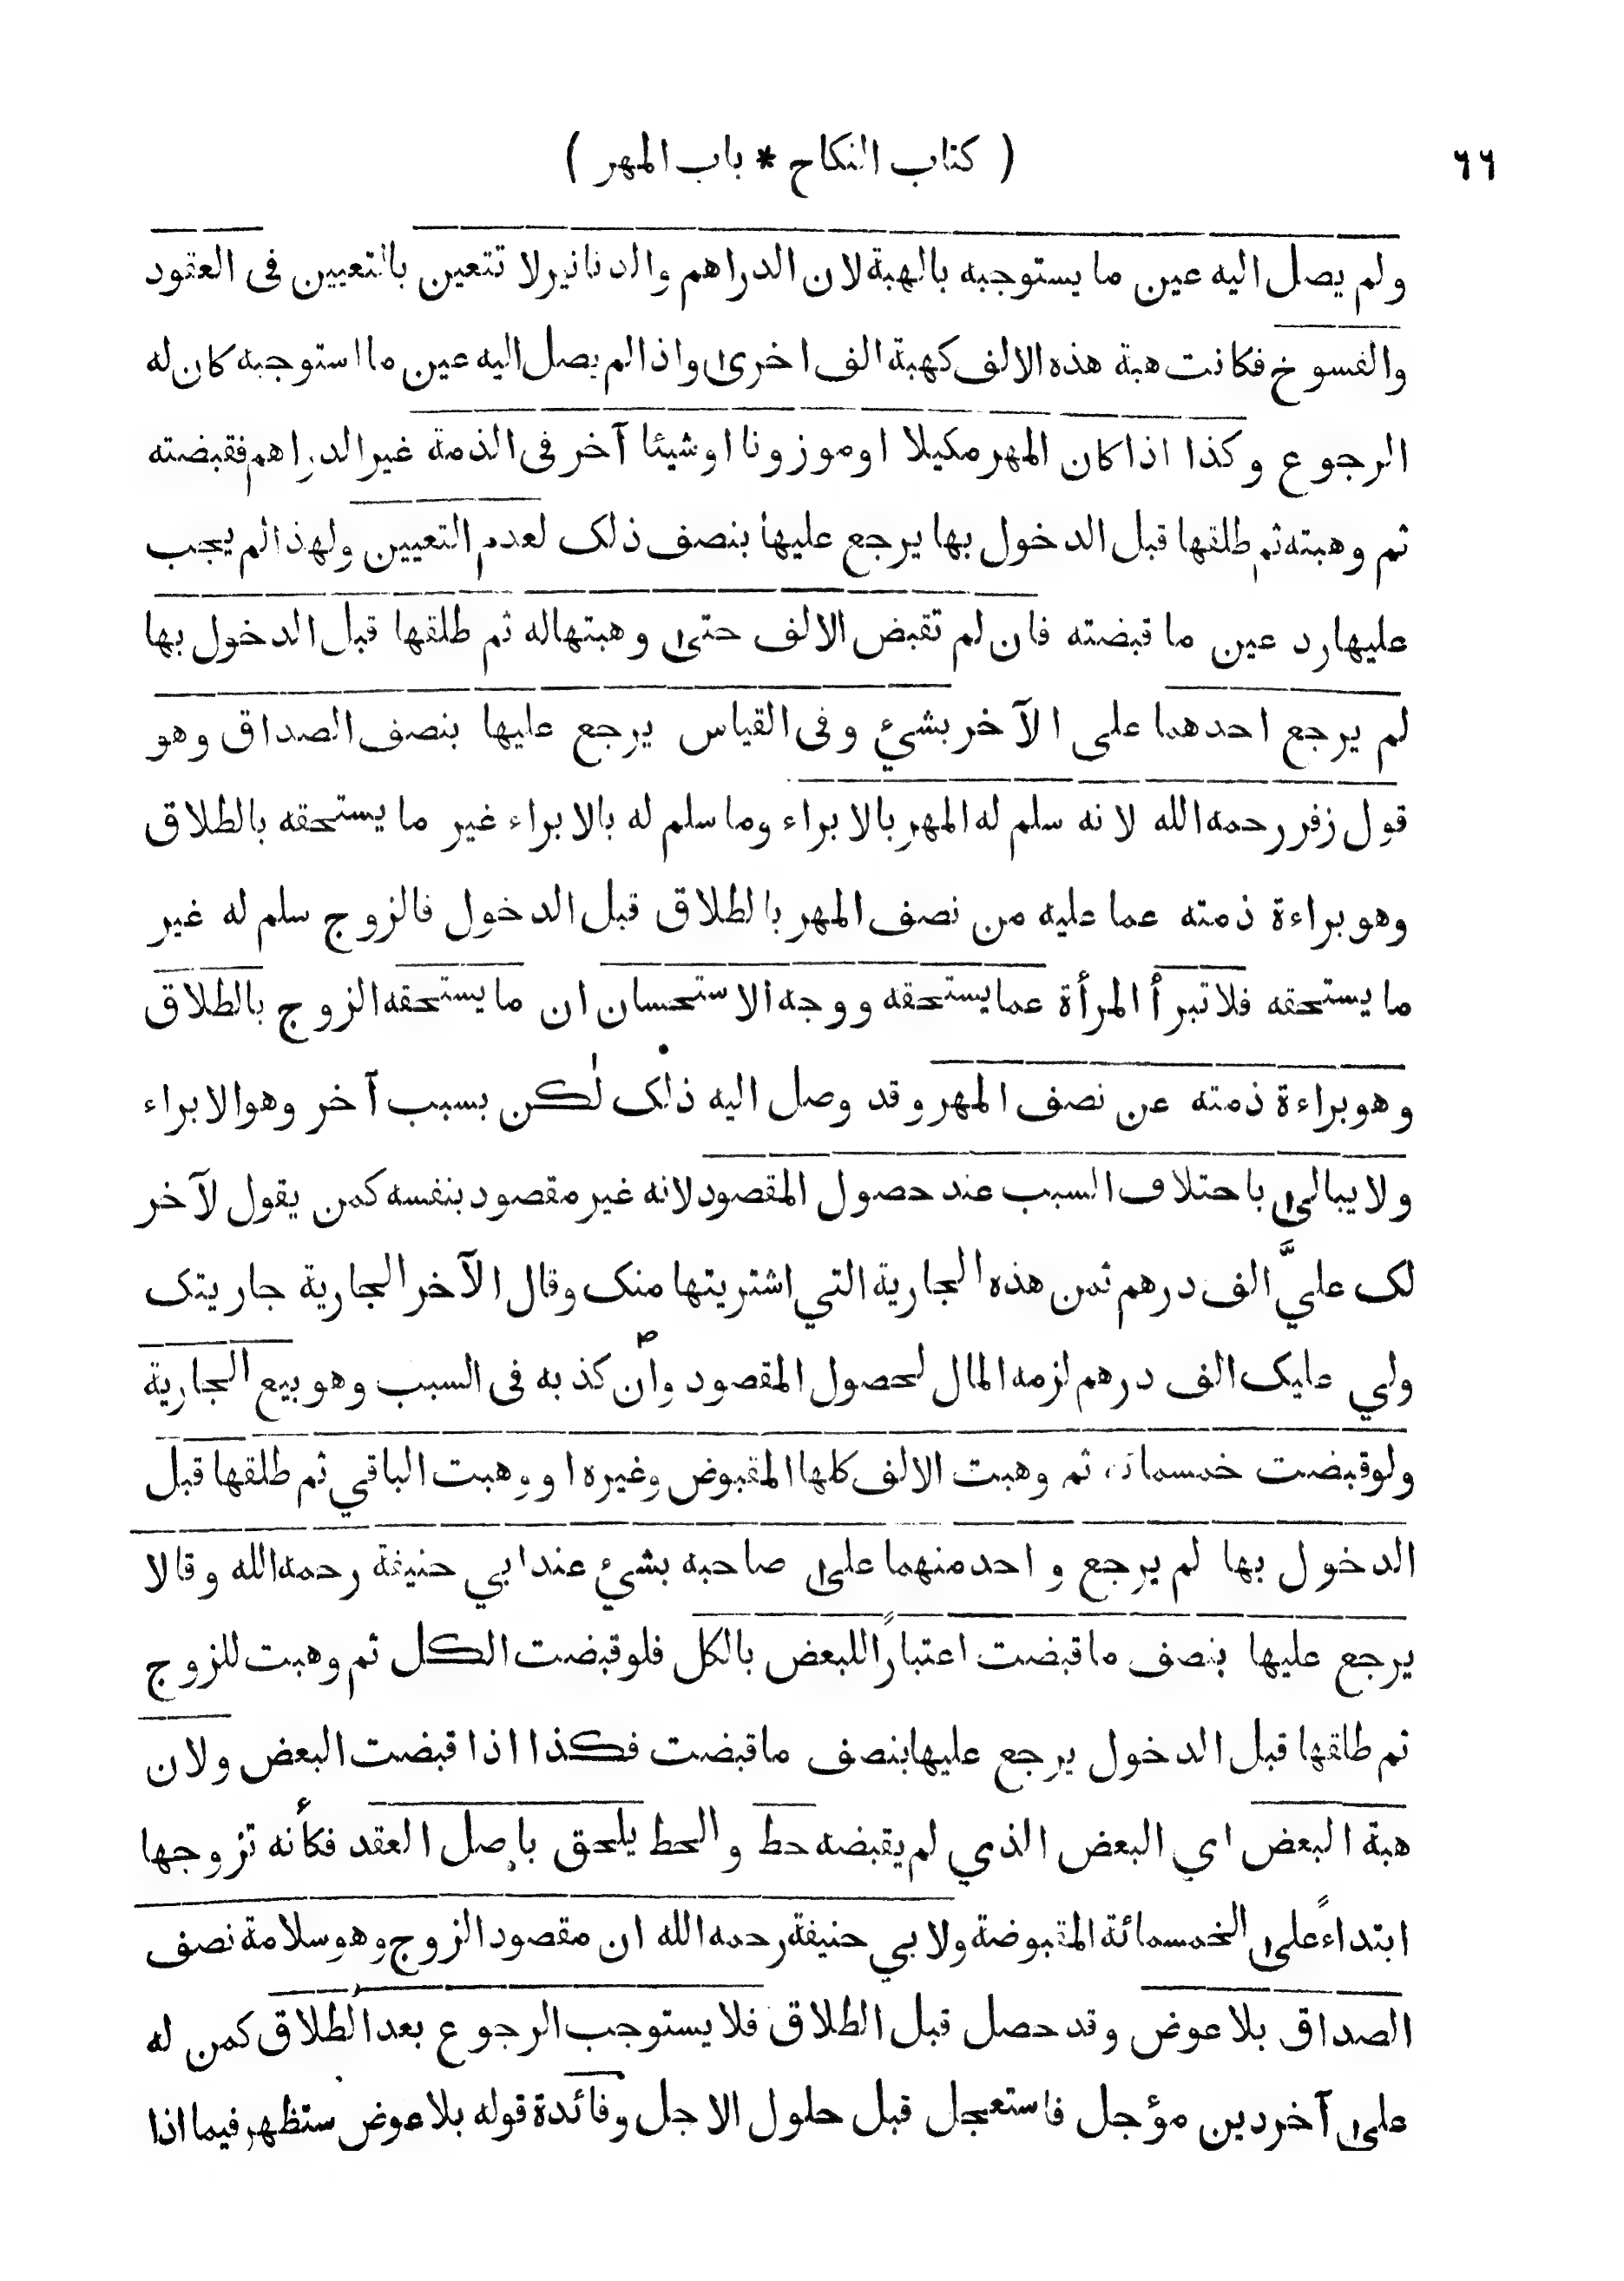 ٦٦
( كتاب النكاح * باب المهر )
ولم يصل اليه عين ما يستوجبه بالهبة لان الدراهم والدنانير لا تتعين بالتعيين فى العقود
والفسوخ فكانت هبة هذه الالف كهبة الف اخرى واذا لم يصل اليه عين ما استوجبه كان له
الرجوع وكذا اذا كان المهر مكيلا او موزونا او شيئا آخر فى الذمة غير الدراهم فقبضته
ثم وهبته ثم طلقها قبل الدخول بها يرجع عليها بنصف ذلك لعدم التعيين ولهذا لم يجب
عليها رد عين ما قبضته فان لم تقبض الالف حتى وهبتها له ثم طلقها قبل الدخول بها
لم يرجع احدهما على الآخر بشئ وفى القياس يرجع عليها بنصف الصداق وهو
قول زفر رحمه الله لانه سلم له المهر بالابراء وما سلم له بالابراء غير ما يستحقه بالطلاق
وهو براءة ذمته عما عليه من نصف المهر بالطلاق قبل الدخول فالزوج سلم له غير
ما يستحقه فلا تبرأ المرأة عما يستحقه ووجه الاستحسان ان ما يستحقه الزوج بالطلاق
وهو براءة ذمته عن نصف المهر وقد وصل اليه ذلك لكن بسبب آخر وهو الابراء
ولا يبالى باختلاف السبب عند حصول المقصود لانه غير مقصود بنفسه كمن يقول لآخر
لك عليَّ الف درهم ثمن هذه الجارية التي اشتريتها منك وقال الآخر الجارية جاريتك
ولي عليك الف درهم لزمه المال لحصول المقصود وان كذبه فى السبب وهو بيع الجارية
ولو قبضت خمسمائة ثم وهبت الالف كلها المقبوض وغيره او وهبت الباقي ثم طلقها قبل
الدخول بها لم يرجع واحد منهما على صاحبه بشئ عند ابي حنيفة رحمه الله وقالا
يرجع عليها بنصف ما قبضت اعتباراً للبعض بالكل فلو قبضت الكل ثم وهبت للزوج
ثم طلقها قبل الدخول يرجع عليها بنصف ما قبضت فكذا اذا قبضت البعض ولان
هبة البعض اي البعض الذي لم يقبضه حط والحط يلحق باصل العقد فكأنه تزوجها
ابتداءً على الخمسمائة المقبوضة ولابي حنيفة رحمه الله ان مقصود الزوج وهو سلامة نصف
الصداق بلا عوض وقد حصل قبل الطلاق فلا يستوجب الرجوع بعد الطلاق كمن له
على آخر دين مؤجل فاستعجل قبل حلول الاجل وفائدة قوله بلا عوض ستظهر فيما اذا